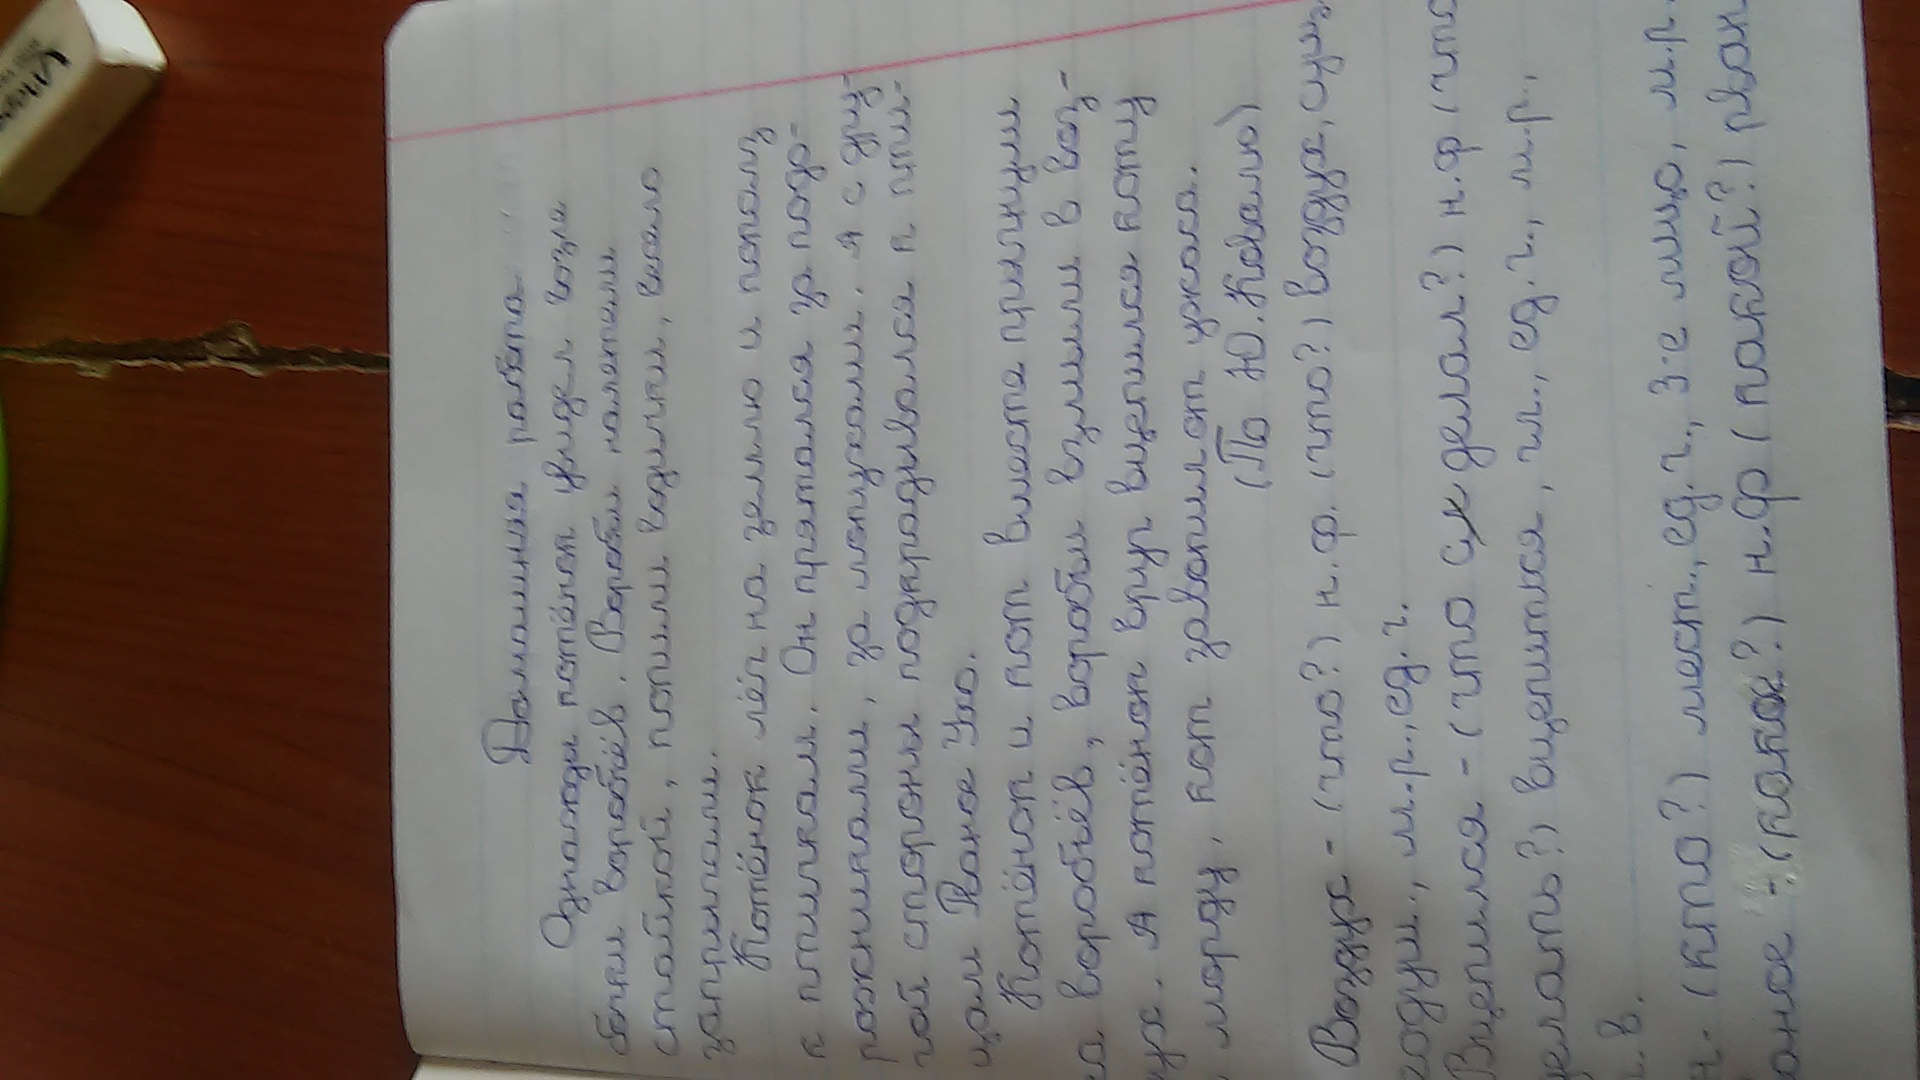 Домашняя работа
Однажды котёнок увидел возле
ёлки воробьёв. Воробьи налетали
стайкой, попили водички, весело
зачирикали.
Котёнок лёг на землю и пополз
к птичкам. Он прятался за подо-
рожниками, за лопухами. А с дру-
гой стороны подкрадывался к пти-
цам Рваное Ухо.
Котёнок и кот вместе прыгнули
на воробьёв, воробьи взмыли в воз-
дух. А котёнок вдруг вцепился коту
в морду, кот завопил от ужаса.
(По Ю. Ковалю)
Воздух - (что?) н.ф. (что?) воздух, сущ.,
м.р., ед.ч.
Вцепился - (что сделал?) н.ф (что
делать?) вцепиться, гл., ед.ч., м.р.,
п.в.
Он - (кто?) мест., ед.ч., 3-е лицо, м.р.
Рваное - (какое?) н.ф (какой?) рван